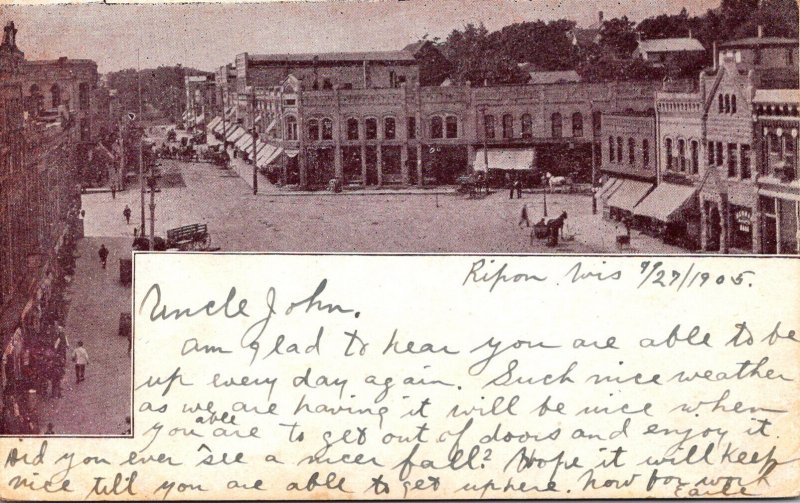 Ripon Wis 9/27/1905.
Uncle John.
am glad to hear you are able to be
up every day again. Such nice weather
as we are having it will be nice when
you are able to get out of doors and enjoy it.
Did you ever see a nicer fall? Hope it will keep
nice till you are able to get uphere. now for work